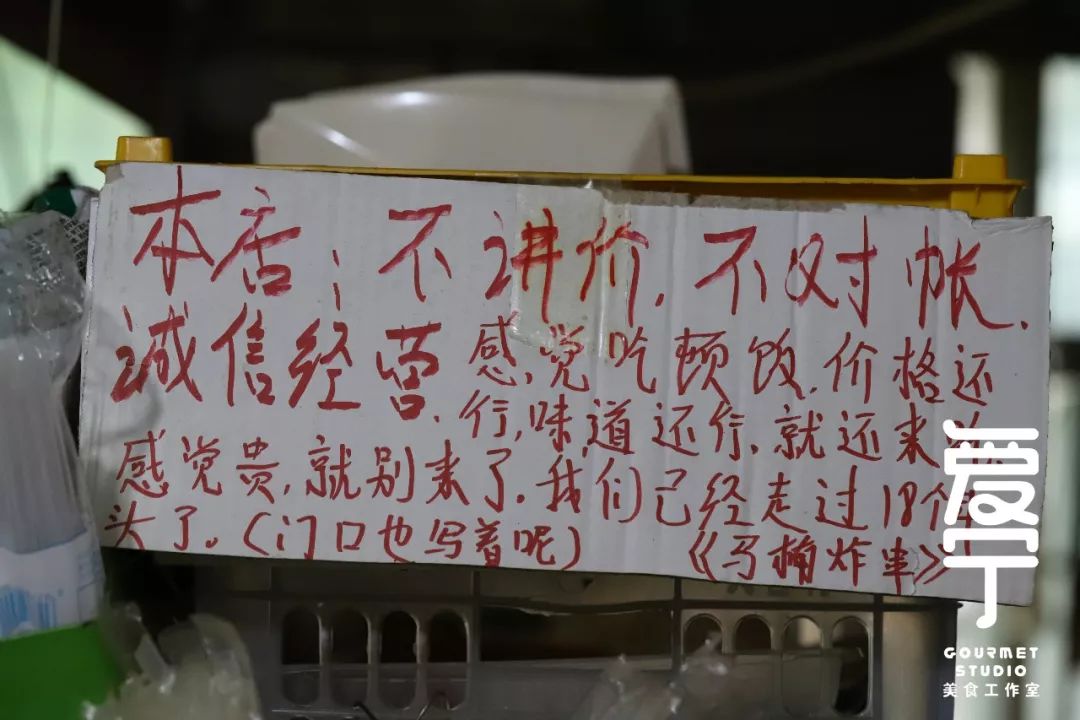 本店;不讲价.不对帐.
诚信经营.感觉吃顿饭.价格还
行,味道还行.就还来
感觉贵,就别来了.我们已经走过18个年
头了。(门口也写着呢) 《马桶炸串》
爱丁
GOURMET
STUDIO
美食工作室